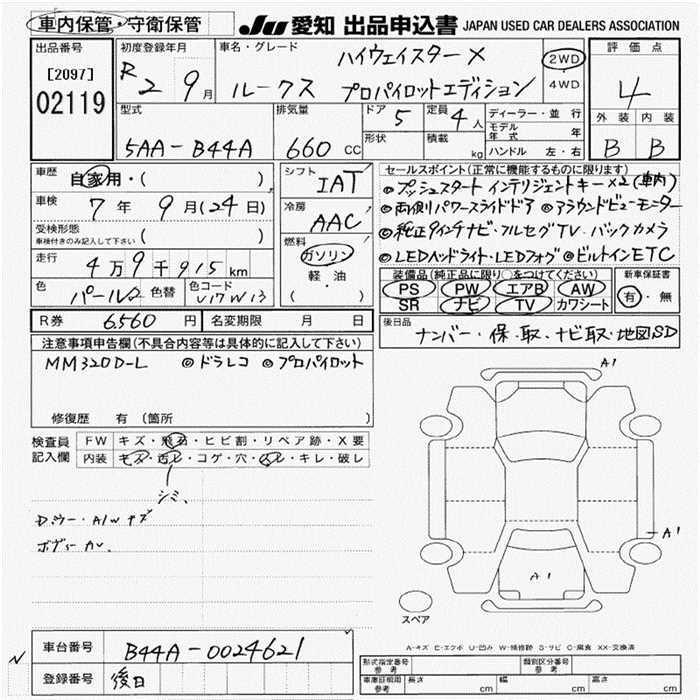 車内保管・守衛保管
JU 愛知 出品申込書 JAPAN USED CAR DEALERS ASSOCIATION
出品番号
[2097]
02119
初度登録年月
R2 9月
車名・グレード
ハイウェイスターX
ルークス プロパイロットエディション
2WD
4WD
評価点
4
外装 内装
B B
型式
5AA-B44A
排気量
660 CC
ドア 5
形状
定員 4人
積載 kg
ディーラー・並行
モデル年式 年
ハンドル 左・右
車歴 自家用・( )
車検 7年 9月(24日)
受検形態
車検付きのみ記入して下さい ( )
走行 4万9千915km
色 パール2 色替 色コード U17W13
シフト IAT
冷房 AAC
燃料 ガソリン
軽・油
( )
セールスポイント(正常に機能するものに限ります)
◎プッシュスタート インテリジェントキー×2(車内)
◎両側パワースライドドア ◎アラウンドビューモニター
◎純正9インチナビ・フルセグTV・バックカメラ
◎LEDヘッドライト・LEDフォグ ◎ビルトインETC
装備品(純正品に限り○をつけてください)
PS PW エアB AW
SR ナビ TV カワシート
新車保証書
有・無
R券 6,560円 名変期限 月 日
後日品
ナンバー・保・取、ナビ取・地図SD
注意事項申告欄(不具合内容等は具体的に記入して下さい)
MM320D-L ◎ドラレコ ◎プロパイロット
修復歴 有(箇所 )
検査員記入欄
FW キズ・飛石・ヒビ割・リペア跡・X要
内装 キズ・汚レ・コゲ・穴・スレ・キレ・破レ
シミ、
A1
A1
A1
スペア
A-キズ E-エクボ U-凹み W-補修跡 S-サビ C-腐食 XX-交換済
車台番号 B44A-0024621
登録番号 後日
形式指定番号
参考
類別区分番号
参考
車庫証明規格
参考
長さ cm
幅 cm
高さ cm